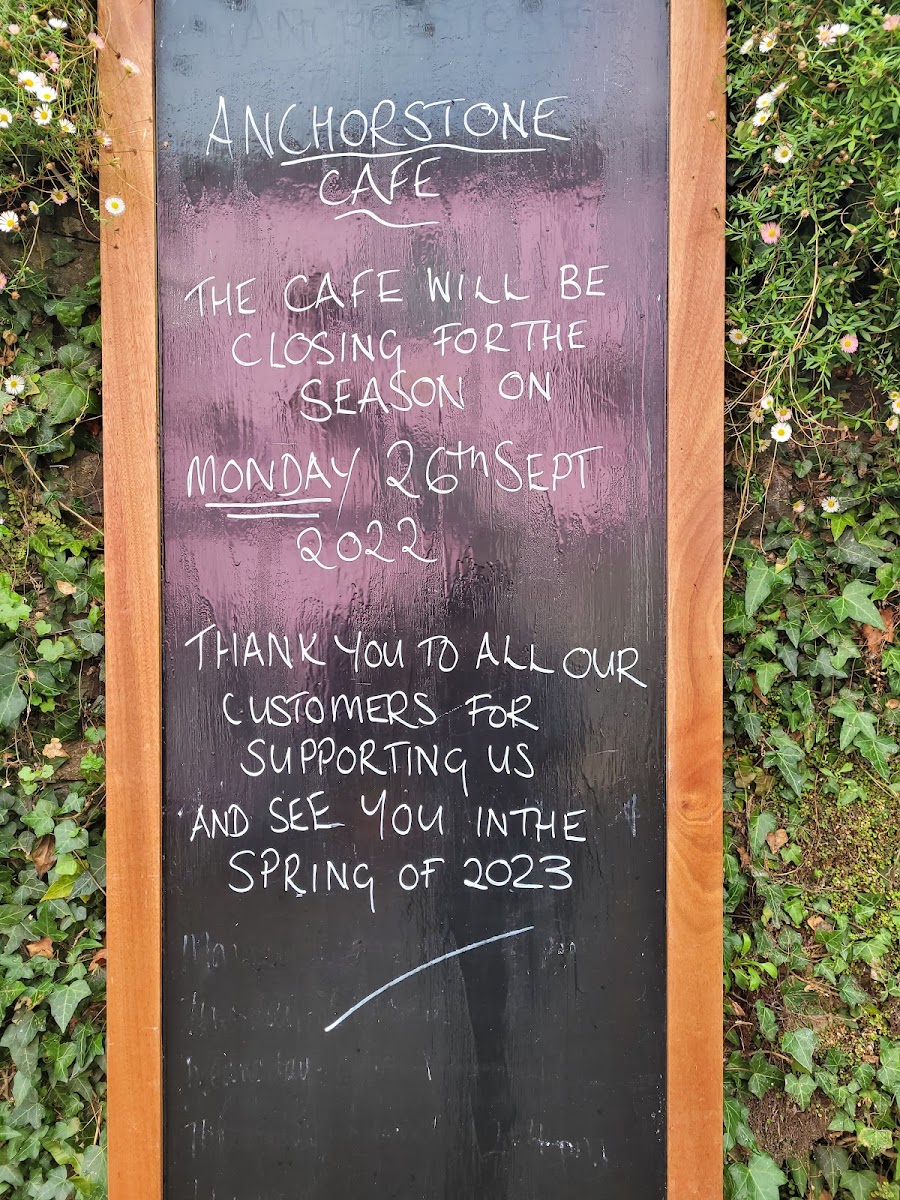 ANCHORSTONE
CAFE
THE CAFE WILL BE
CLOSING FOR THE
SEASON ON
MONDAY 26th SEPT
2022
THANK YOU TO ALL OUR
CUSTOMERS FOR
SUPPORTING US
AND SEE YOU IN THE
SPRING OF 2023